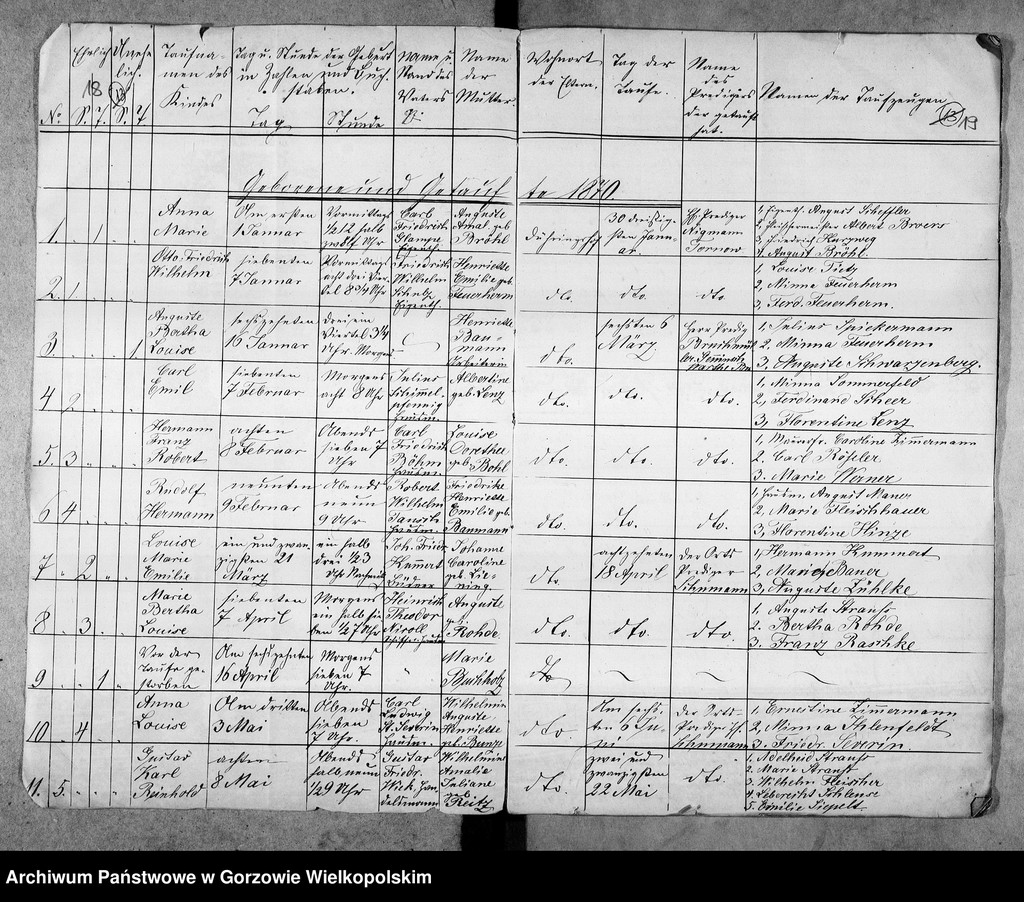 18
19
No
Ehelich
Unehelich.
S. T. S. T
Taufna-
men des
Kindes
Tag u. Stunde der Geburt
in Zahlen und Buch-
staben.
Tag
Stunde
Name u.
Stand des
Vaters
Name
der
Mutter
Wohnort
der Eltern.
Tag der
Taufe.
Name
des
Predigers
der getauft
hat.
Namen der Taufzeugen
Geborene und Getaufte 1870.
1. 1
Anna
Marie
Am ersten
1 Januar
Vormittags
1/2 12 halb
zwölf Uhr
Carl
Friedrich
Auguste
Amal. geb
Bröhl
30 dreißig-
sten Janu-
ar.
H. Prediger
Tornow
1, August Scheffler
2, Albert Brvers
3, Friedrich
4, August Bröhl.
2. 1
Otto Friedrich
Wilhelm
siebenten
7 Januar
8 3/4 Uhr
Friedrich
Wilhelm
Schulz
Henriette
Emilie geb.
Feuerherm
dto.
dto.
dto
1, Louise Tietz
2, Minna Feuerherm
3, Ferd. Feuerherm.
3 1
Auguste
Bertha
Louise
sechszehnten
16 Januar
drei ein
Viertel 3 1/4
Uhr Morgens
Henriette
Bau-
mann
Arbeiterin
dto.
sechsten 6
März
Herr Predig
1, Julius Spiekermann
2, Minna Feuerherm
3, Auguste Schwarzenberg.
4 2
Carl
Emil
siebenten
7 Februar
Morgens
acht 8 Uhr
Julius
Schimel-
pfennig
Albertine
geb. Lenz
dto.
dto.
dto.
1, Minna Sommerfeld
2, Ferdinand Scheer
3, Florentine Lenz
5. 3
Hermann
Franz
Robert
achten
8 Februar
Abends
sieben 7
Uhr
Carl
Friedrich
Böhm
Louise
Dorothea
geb. Bohl
dto.
dto.
dto.
1, Caroline Zimmermann
2, Carl Rößler
3. Marie Werner
6 4
Rudolf
Hermann
neunten
9 Februar
Abends
neun
9 Uhr
Robert
Wilhelm
Friedrike
Henriette
Emilie geb.
Baumann
dto.
dto.
dto.
1, August Maner
2, Marie Fleischhauer
3, Florentine Hinze
7 2
Louise
Marie
Emilie
ein und zwan
zigsten 21
März
ein halb
drei 1/2 3
Uhr Nachmit
Joh. Friedr.
Kumert
Johanne
Caroline
geb. Lie-
ning
dto
achtzehnten
18 April
der Orts
Prediger
Schumann
1, Hermann Kummert
2, Marie Bauer
3, Auguste Lühlke
8 3
Marie
Bertha
Louise
siebenten
7 April
Morgens
ein halb sie
ben 1/2 7 Uhr
Heinrich
Theodor
Nicoll
Auguste
geb.
Rohde
dto.
dto.
dto.
1, Auguste Strauß
2. Bertha Rohde
3. Franz Raschke
9 1
Vor der
Taufe ge-
storben
Am sechszehnten
16 April
Morgens
sieben 7
Uhr.
Marie
Buchholz
dto
10 4
Anna
Louise
Am dritten
3 Mai
Abends
sieben
7 Uhr.
Carl
Ludwig
Severin
Wilhelmin
Auguste
Henriette
geb. Bunze
dto.
Am sechs-
ten 6 Ju-
ni
der Orts
Schumann
1, Ernestine Zimmermann
2, Minna Ihlenfeldt
3. Friedr. Severin.
11. 5.
Gustav
Karl
Reinhold
achten
8 Mai
Abends
halb neun
1/2 9 Uhr
Gustav
Friedr.
Wilhelmine
Amalie
Juliane
geb.
Reitz
dto.
zwei und
zwanzigsten
22 Mai
dto.
1. Adelheid Strauß
2. Marie Strauß
3. Wilhelm Fleischer
4. Leberecht Schlense
5. Emilie Siepelt
Archiwum Państwowe w Gorzowie Wielkopolskim